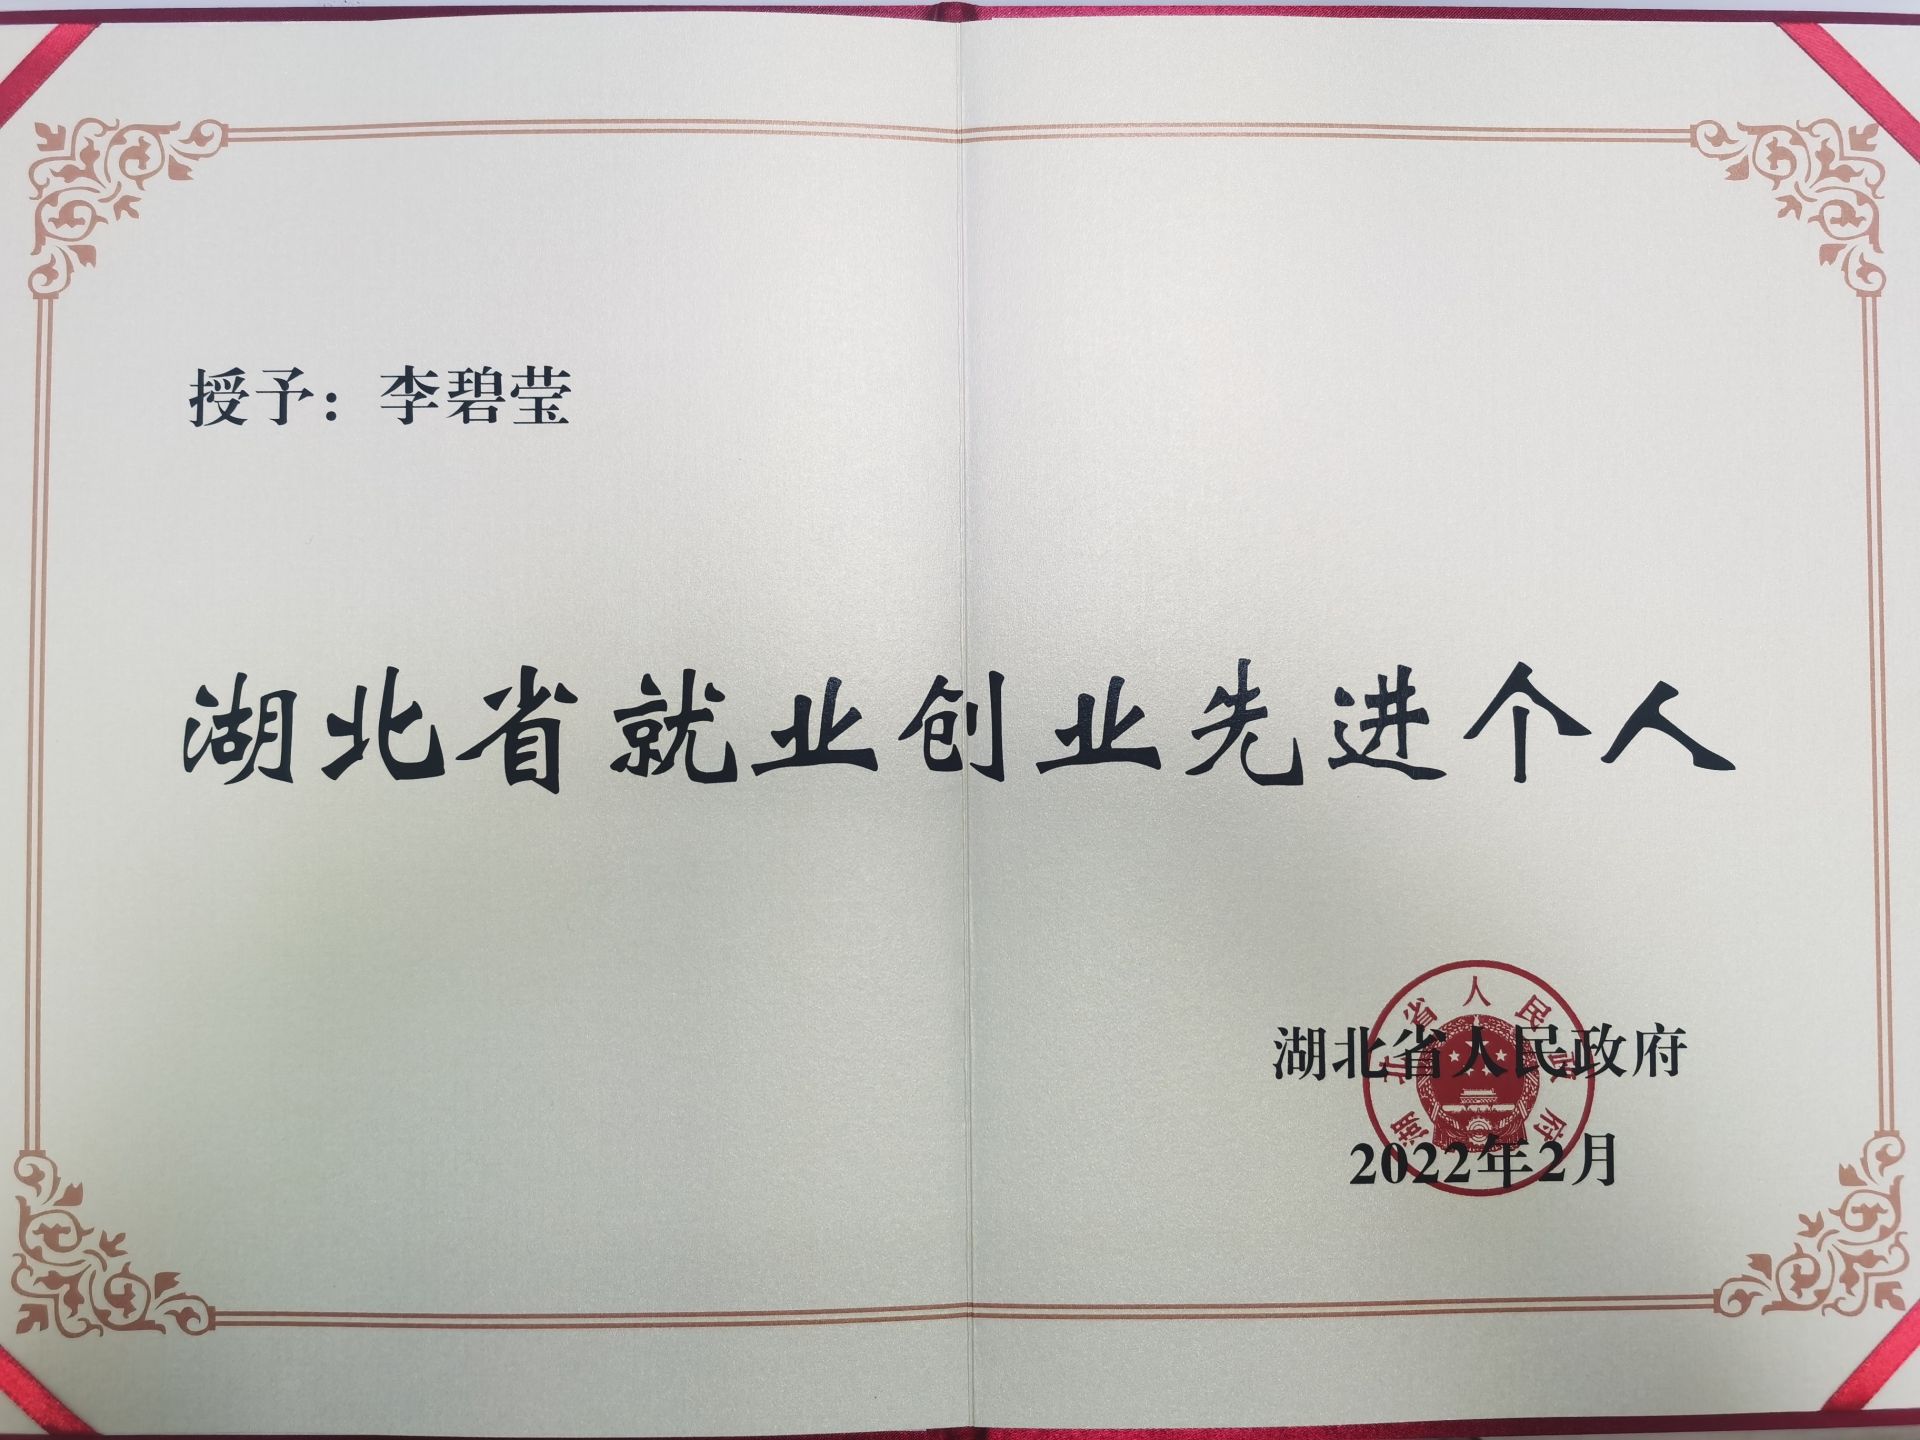 授予：李碧莹
湖北省就业创业先进个人
湖北省人民政府
湖北省人民政府
2022年2月